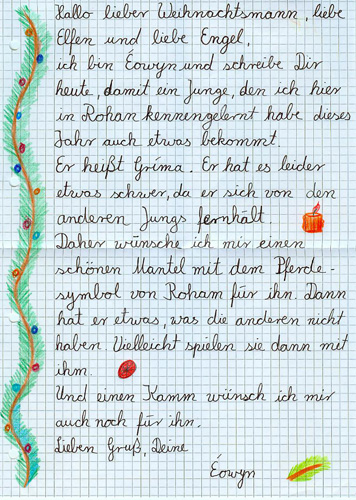 Hallo lieber Weihnachtsmann, liebe
Elfen und liebe Engel,
ich bin Éowyn und schreibe Dir
heute, damit ein Junge, den ich hier
in Rohan kennengelernt habe dieses
Jahr auch etwas bekommt.
Er heißt Gríma. Er hat es leider
etwas schwer, da er sich von den
anderen Jungs fernhält.
Daher wünsche ich mir einen
schönen Mantel mit dem Pferde-
symbol von Roham für ihn. Dann
hat er etwas, was die anderen nicht
haben. Vielleicht spielen sie dann mit
ihm.
Und einen Kamm wünsch ich mir
auch noch für ihn.
Lieben Gruß, Deine
Éowyn